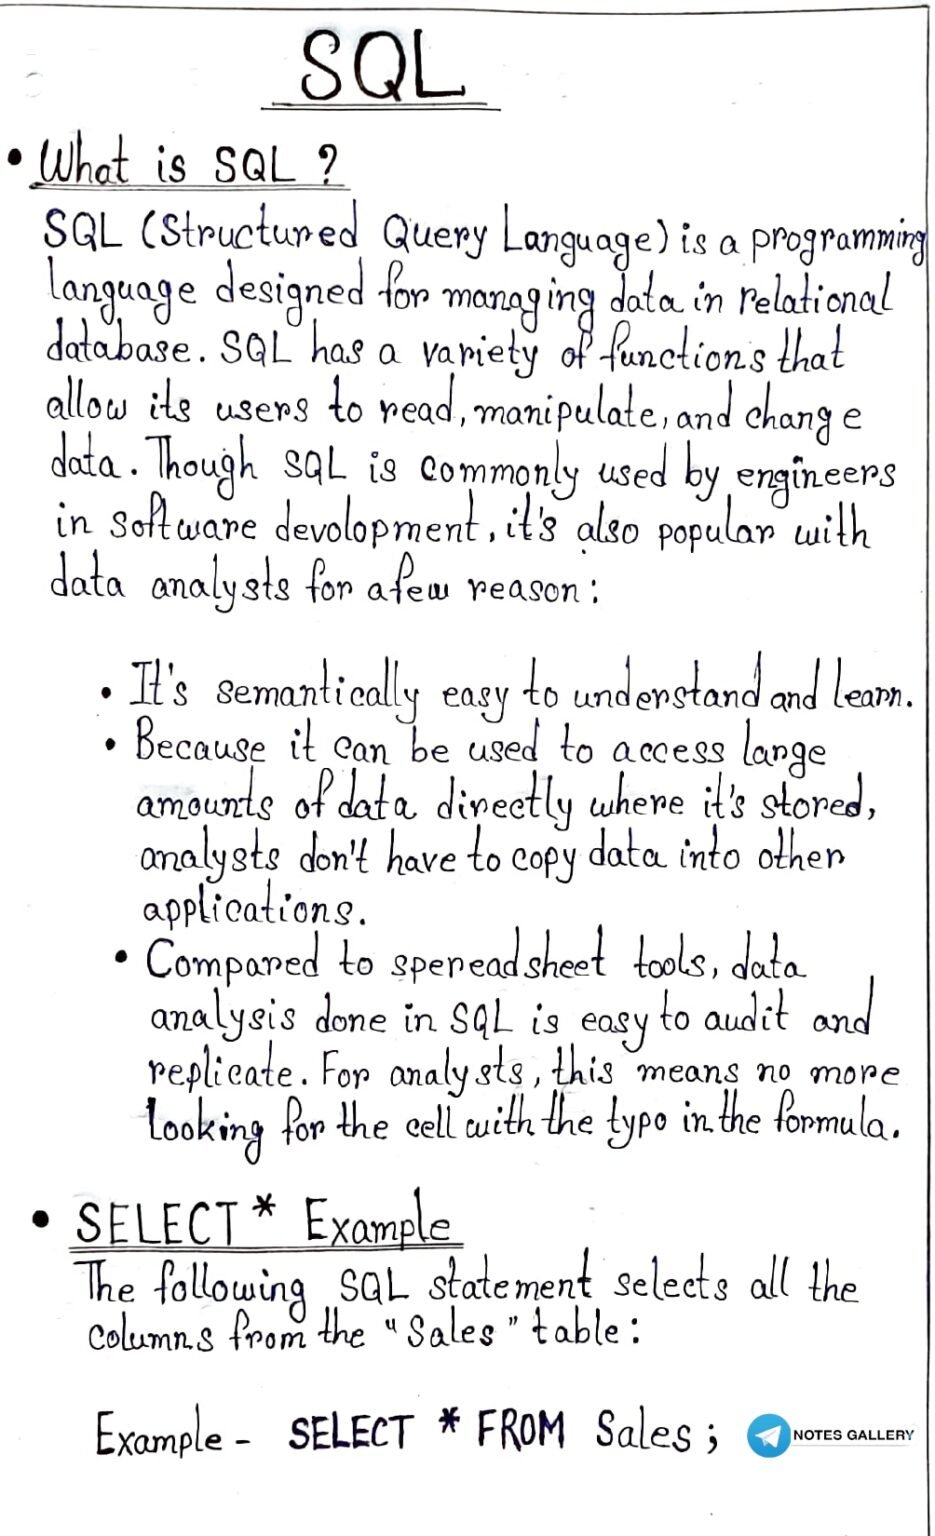 SQL
• What is SQL ?
SQL (Structured Query Language) is a programming
language designed for managing data in relational
database. SQL has a variety of functions that
allow its users to read, manipulate, and change
data. Though SQL is commonly used by engineers
in software devolopment, it's also popular with
data analysts for a few reason:
• It's semantically easy to understand and learn.
• Because it can be used to access large
amounts of data directly where it's stored,
analysts don't have to copy data into other
applications.
• Compared to spereadsheet tools, data
analysis done in SQL is easy to audit and
replicate. For analysts, this means no more
looking for the cell with the typo in the formula.
• SELECT * Example
The following SQL statement selects all the
columns from the "Sales" table:
Example - SELECT * FROM Sales;
NOTES GALLERY